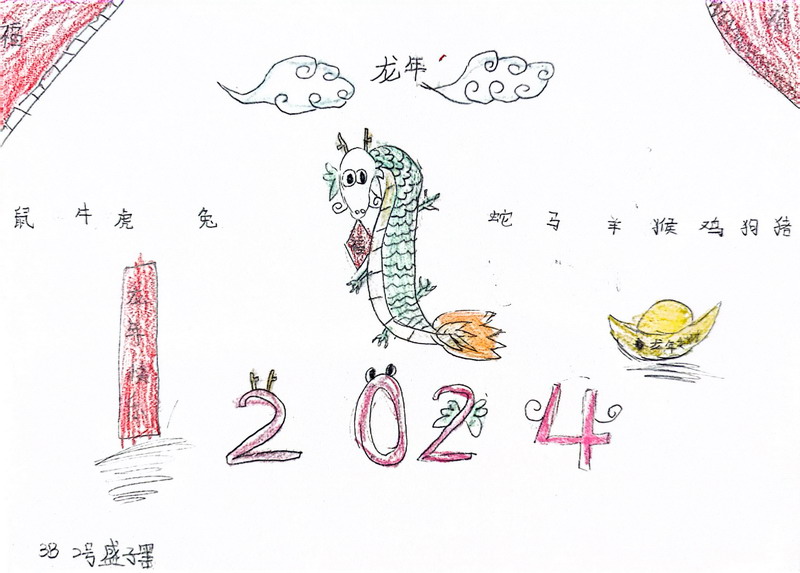 福
龙年
鼠 牛 虎 兔 蛇 马 羊 猴 鸡 狗 猪
龙年
龙年
2024
3B 2号盛子墨